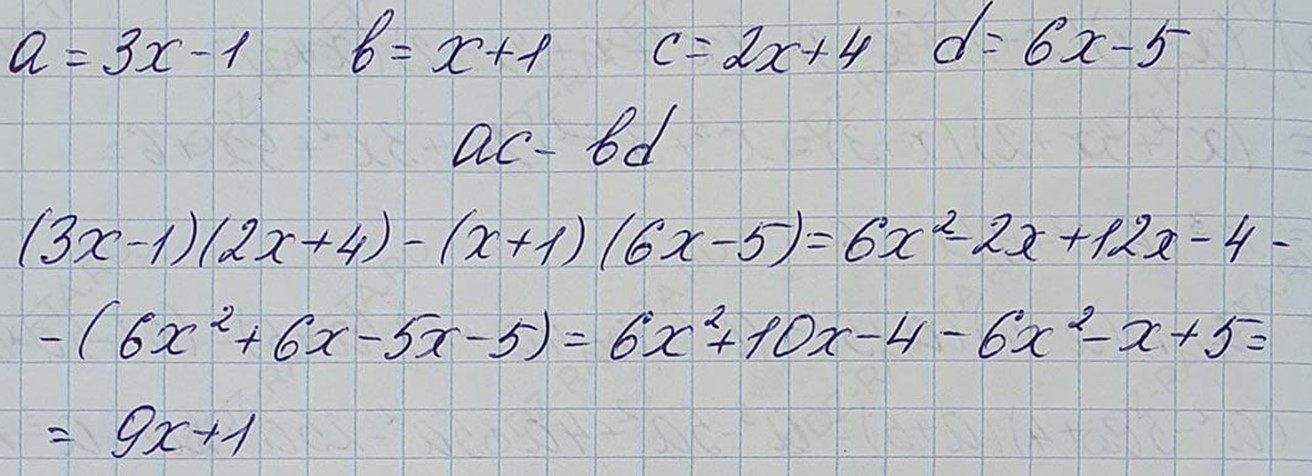 a = 3x - 1 b = x + 1 c = 2x + 4 d = 6x - 5
ac - bd
(3x - 1)(2x + 4) - (x + 1)(6x - 5) = 6x² - 2x + 12x - 4 -
- (6x² + 6x - 5x - 5) = 6x² + 10x - 4 - 6x² - x + 5 =
= 9x + 1